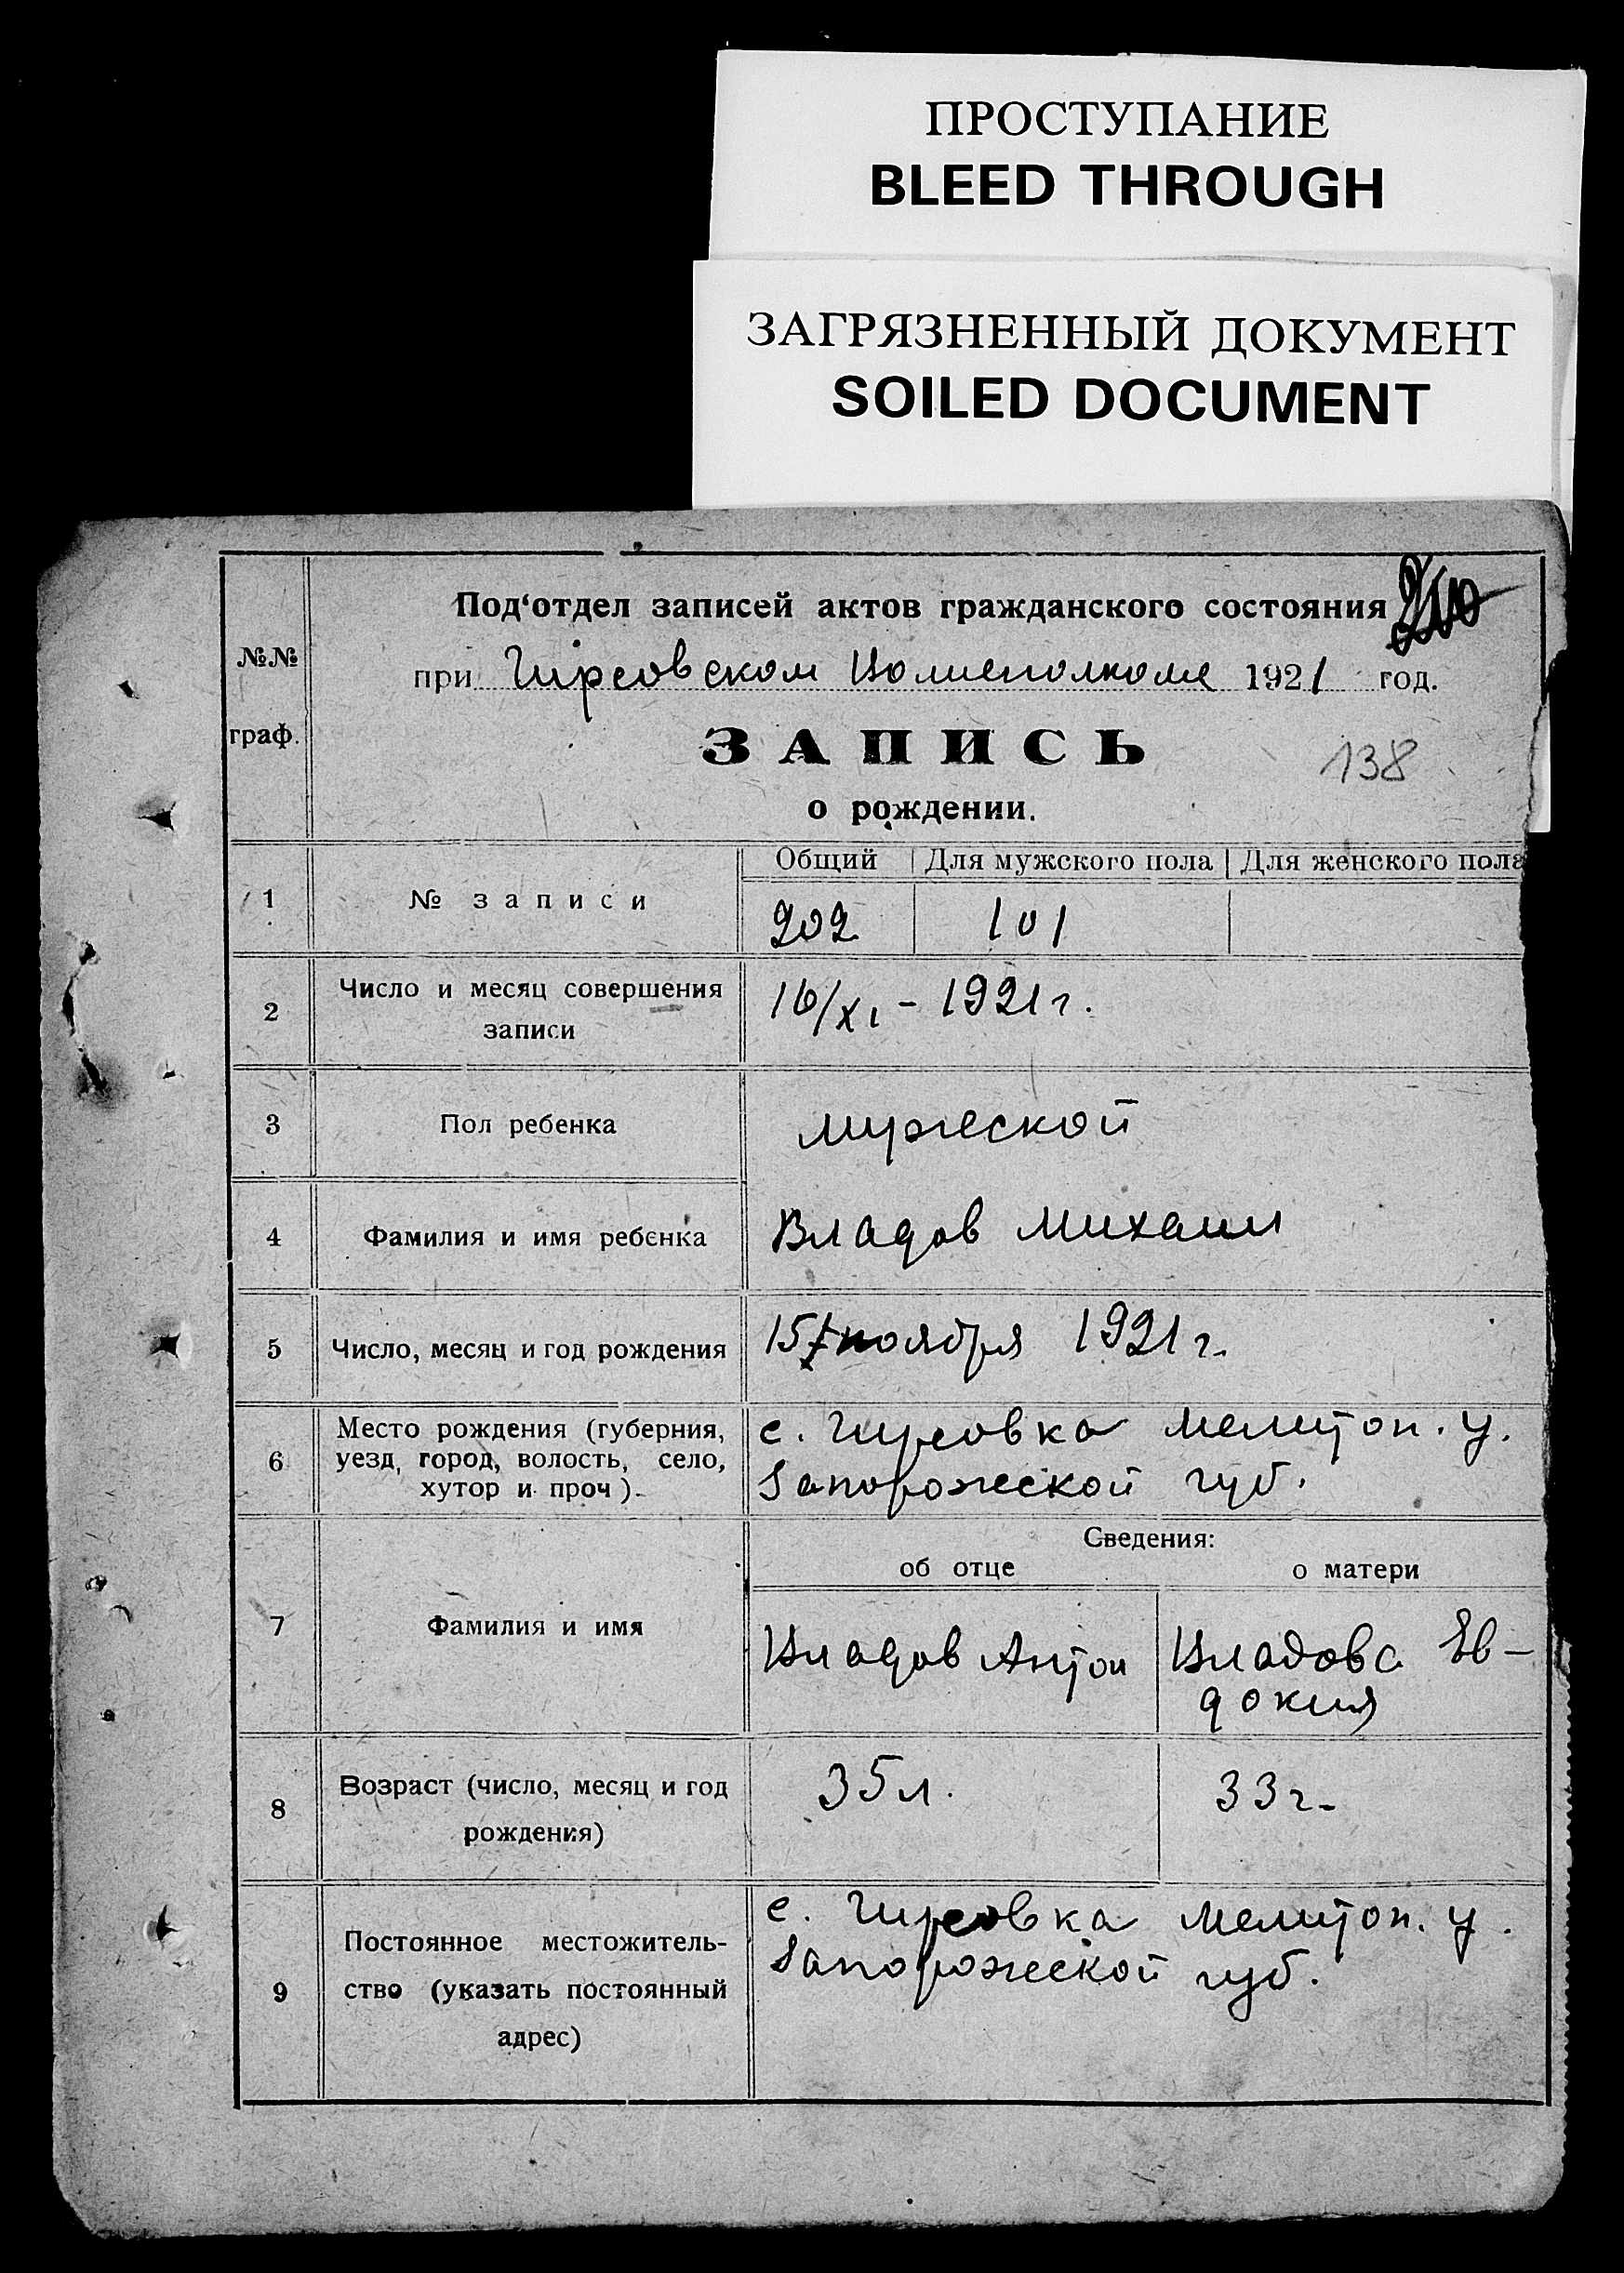 ПРОСТУПАНИЕ
BLEED THROUGH
ЗАГРЯЗНЕННЫЙ ДОКУМЕНТ
SOILED DOCUMENT
№№
граф.
Под‘отдел записей актов гражданского состояния
при Гирсовском Волисполкоме 1921 год.
ЗАПИСЬ
138
о рождении.
1 № записи
Общий Для мужского пола Для женского пола
202 101
2 Число и месяц совершения записи
16/XI - 1921 г.
3 Пол ребенка
мужеской
4 Фамилия и имя ребенка
Владов Михаил
5 Число, месяц и год рождения
15 ноября 1921 г.
6 Место рождения (губерния,
уезд, город, волость, село,
хутор и проч).
с. Гирсовка Мелитоп. у.
Запорожеской губ.
Сведения:
об отце о матери
7 Фамилия и имя
Владов Антон
Владова Ев-
докия
8 Возраст (число, месяц и год
рождения)
35 л. 33 г.
9 Постоянное местожитель-
ство (указать постоянный
адрес)
с. Гирсовка Мелитоп. у.
Запорожеской губ.